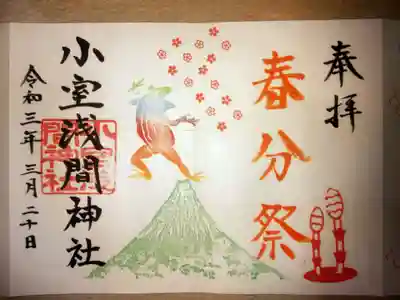 奉拝
春分祭
小室浅間神社
令和三年三月二十日